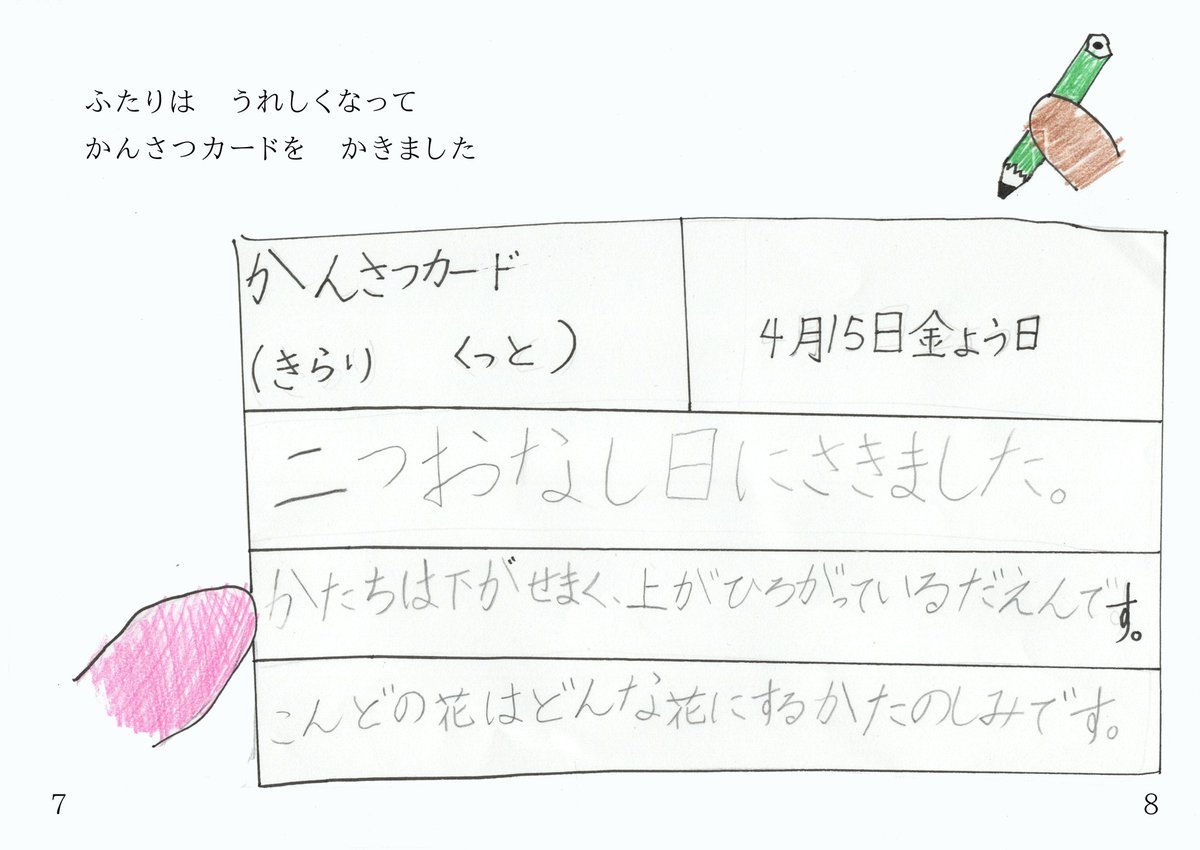 ふたりは　うれしくなって
かんさつカードを　かきました
かんさつカード
(きらり　くっと)
4月15日金よう日
二つおなし日にさきました。
かたちは下がせまく、上がひろがっているだえんです。
こんどの花はどんな花にするかたのしみです。
7
8